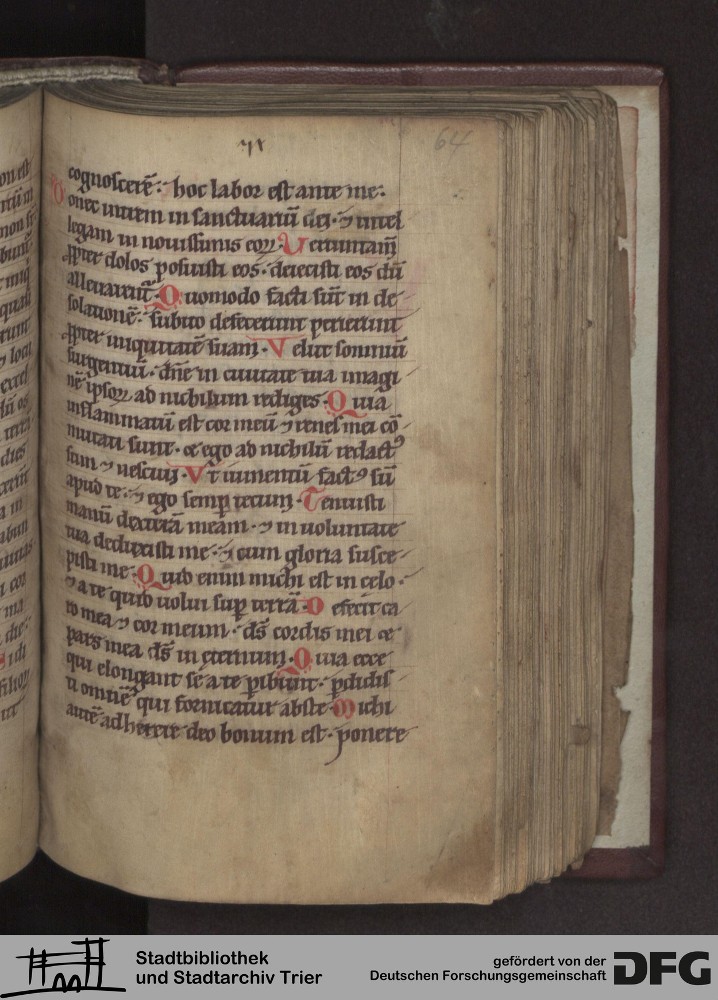 64
cognoscerē· hoc labor est ante me·
Donec intrem in sanctuariū dei· ⁊ intel
legam in nouissimis eoꝝ· Veruntam̄
ꝓpter dolos posuisti eos· deiecisti eos dū
alleuarent̄· Quomodo facti sūt in de
solationē· subito defecerunt perierunt
ꝓpter iniquitatē suam· Velut somniū
surgentiū· dn̄e in ciuitate tua imagi
nē ipsoꝝ ad nichilum rediges· Quia
inflammatū est cor meū ⁊ renes mei cō
mutati sunt· et ego ad nichilū redactꝰ
sum ⁊ nesciui· Vt iumentū factꝰ sū
apud te· ⁊ ego semꝑ tecum· Tenuisti
manū dexterā meam· ⁊ in uoluntate
tua deduxisti me· ⁊ cum gloria susce
pisti me· Quid enim michi est in celo·
⁊ a te quid uolui suꝑ terrā· Defecit ca
ro mea ⁊ cor meum· ds̄ cordis mei et
pars mea ds̄ in eternum· Quia ecce
qui elongant se a te ꝑibunt· ꝑdidis
ti omnē qui fornicatur abs te· Michi
autē adherere deo bonum est· ponere
Stadtbibliothek
und Stadtarchiv Trier
gefördert von der
Deutschen Forschungsgemeinschaft
DFG